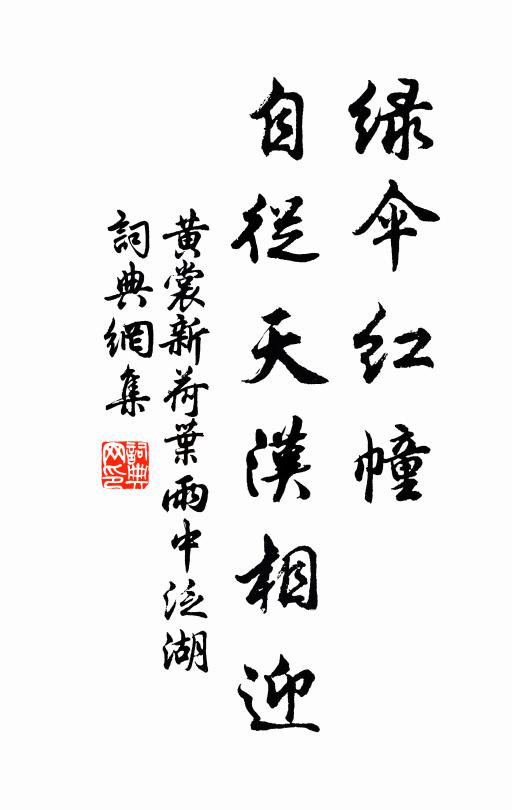 绿伞红幢
自從天漢相迎
黄裳新荷葉雨中泛湖
詞典網集
詞典网印